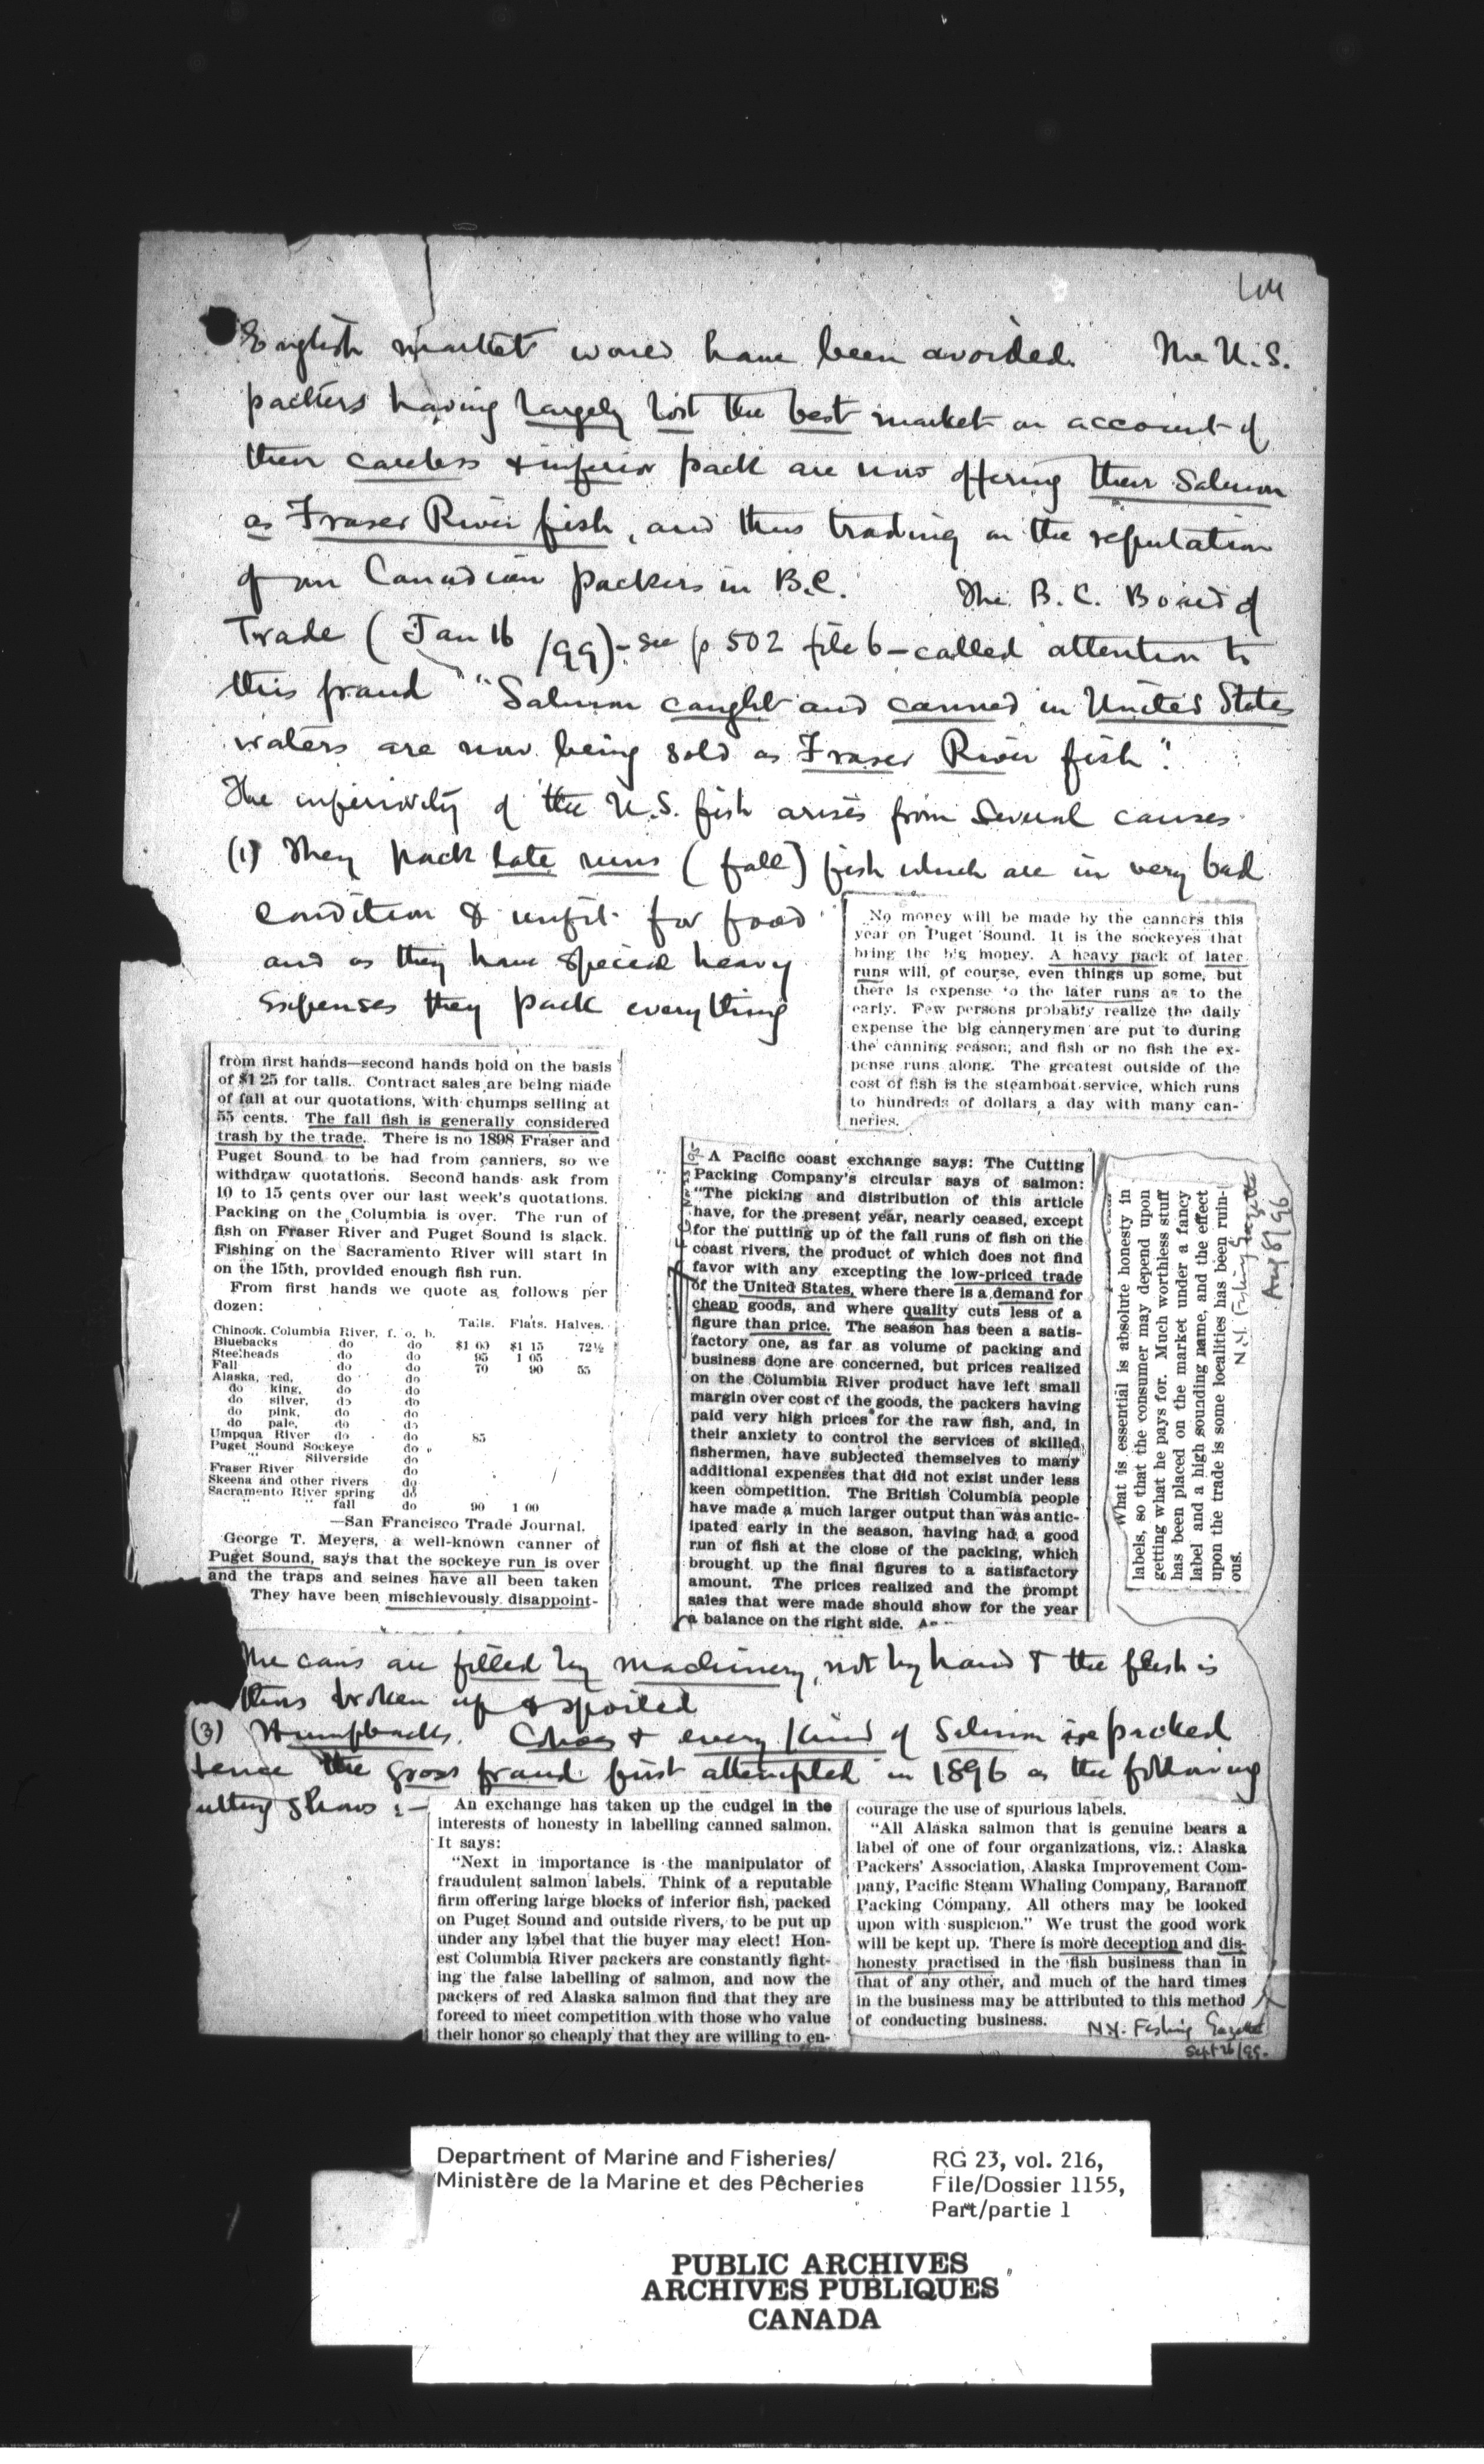 English market would have been avoided. The U.S.
packers having largely lost the best market on account of
their careless & inferior pack are now offering their Salmon
as Fraser River fish, and thus trading on the reputation
of our Canadian packers in B.C. The B.C. Board of
Trade (Jan 16/99) - see p 502 file 6 - called attention to
this fraud "Salmon caught and canned in United States
waters are now being sold as Fraser River fish".
The inferiority of the U.S. fish arises from Several causes
(1) They pack late runs (fall) fish which are in very bad
condition & unfit for food
and as they have special heavy
expenses they pack everything
No money will be made by the canners this
year on Puget Sound. It is the sockeyes that
bring the big money. A heavy pack of later
runs will, of course, even things up some, but
there is expense to the later runs as to the
early. Few persons probably realize the daily
expense the big cannerymen are put to during
the canning season, and fish or no fish the ex-
pense runs along. The greatest outside of the
cost of fish is the steamboat service, which runs
to hundreds of dollars a day with many can-
neries.
from first hands—second hands hold on the basis
of $1 25 for talls. Contract sales are being made
of fall at our quotations, with chumps selling at
55 cents. The fall fish is generally considered
trash by the trade. There is no 1898 Fraser and
Puget Sound to be had from canners, so we
withdraw quotations. Second hands ask from
10 to 15 cents over our last week's quotations.
Packing on the Columbia is over. The run of
fish on Fraser River and Puget Sound is slack.
Fishing on the Sacramento River will start in
on the 15th, provided enough fish run.
From first hands we quote as follows per
dozen:
Talls. Flats. Halves.
Chinook, Columbia River, f. o. b.
Bluebacks do do $1 00 $1 15 72½
Steelheads do do 95 1 05
Fall do do 70 90 55
Alaska, red, do do
do king, do do
do silver, do do
do pink, do do
do pale, do do
Umpqua River do do 85
Puget Sound Sockeye do
" Silverside do
Fraser River do
Skeena and other rivers do
Sacramento River spring do
" " fall do 90 1 00
—San Francisco Trade Journal.
George T. Meyers, a well-known canner of
Puget Sound, says that the sockeye run is over
and the traps and seines have all been taken
They have been mischievously disappoint-
A Pacific coast exchange says: The Cutting
Packing Company's circular says of salmon:
"The picking and distribution of this article
have, for the present year, nearly ceased, except
for the putting up of the fall runs of fish on the
coast rivers, the product of which does not find
favor with any excepting the low-priced trade
of the United States, where there is a demand for
cheap goods, and where quality cuts less of a
figure than price. The season has been a satis-
factory one, as far as volume of packing and
business done are concerned, but prices realized
on the Columbia River product have left small
margin over cost of the goods, the packers having
paid very high prices for the raw fish, and, in
their anxiety to control the services of skilled
fishermen, have subjected themselves to many
additional expenses that did not exist under less
keen competition. The British Columbia people
have made a much larger output than was antic-
ipated early in the season, having had a good
run of fish at the close of the packing, which
brought up the final figures to a satisfactory
amount. The prices realized and the prompt
sales that were made should show for the year
a balance on the right side.
What is essential is absolute honesty in
labels, so that the consumer may depend upon
getting what he pays for. Much worthless stuff
has been placed on the market under a fancy
label and a high sounding name, and the effect
upon the trade is some localities has been ruin-
ous.
N.Y. Fishing Gazette
Aug 8/96
The cans are filled by machinery, not by hand & the flesh is
thus broken up & spoiled
(3) Humpbacks, Cohoes & every kind of Salmon is packed
the gross fraud first attempted in 1896 as the following
shows :-
An exchange has taken up the cudgel in the
interests of honesty in labelling canned salmon.
It says:
"Next in importance is the manipulator of
fraudulent salmon labels. Think of a reputable
firm offering large blocks of inferior fish, packed
on Puget Sound and outside rivers, to be put up
under any label that the buyer may elect! Hon-
est Columbia River packers are constantly fight-
ing the false labelling of salmon, and now the
packers of red Alaska salmon find that they are
forced to meet competition with those who value
their honor so cheaply that they are willing to en-
courage the use of spurious labels.
"All Alaska salmon that is genuine bears a
label of one of four organizations, viz.: Alaska
Packers' Association, Alaska Improvement Com-
pany, Pacific Steam Whaling Company, Baranoff
Packing Company. All others may be looked
upon with suspicion." We trust the good work
will be kept up. There is more deception and dis-
honesty practised in the fish business than in
that of any other, and much of the hard times
in the business may be attributed to this method
of conducting business.
N.Y. Fishing Gazette
Department of Marine and Fisheries/
Ministère de la Marine et des Pêcheries
RG 23, vol. 216,
File/Dossier 1155,
Part/partie 1
PUBLIC ARCHIVES
ARCHIVES PUBLIQUES
CANADA